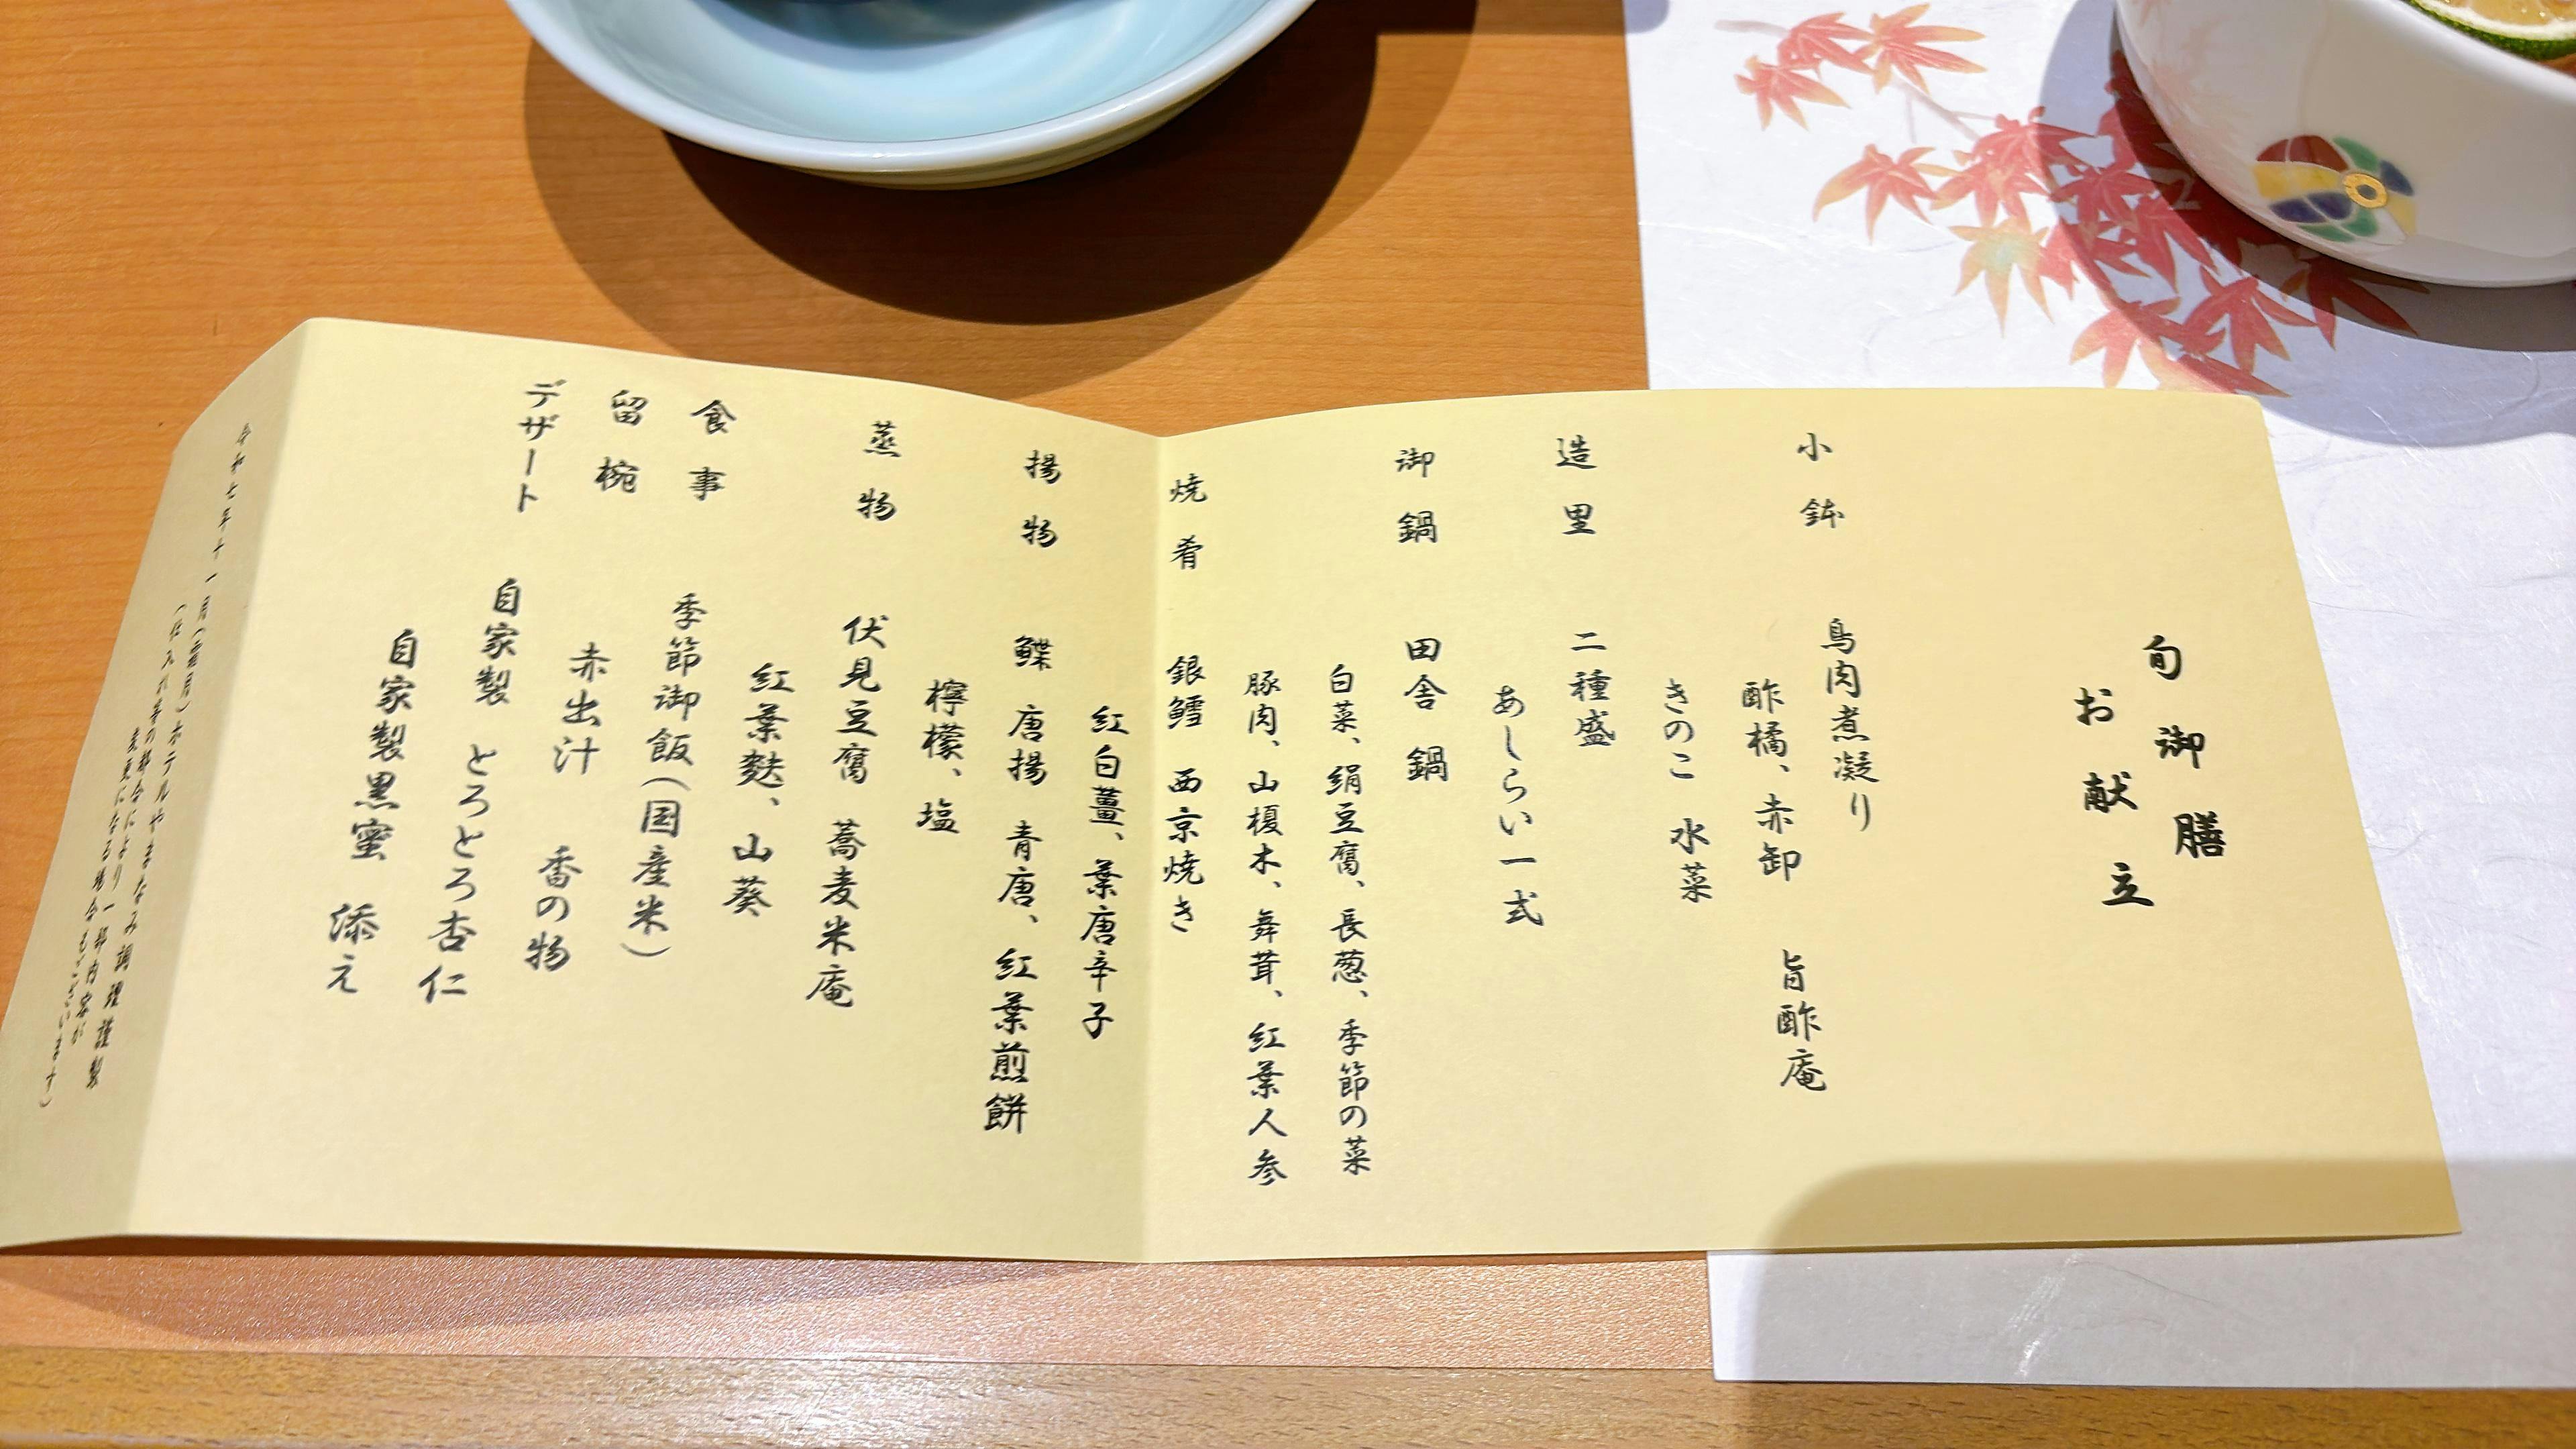 旬御膳
お献立
小鉢 鳥肉煮凝り
酢橘、赤卸 旨酢庵
きのこ 水菜
造里 二種盛
あしらい一式
御鍋 田舎鍋
白菜、絹豆腐、長葱、季節の菜
豚肉、山榎木、舞茸、紅葉人参
焼肴 銀鱈 西京焼き
紅白薑、葉唐辛子
揚物 鰈 唐揚 青唐、紅葉煎餅
檸檬、塩
蒸物 伏見豆腐 蕎麦米庵
紅葉麩、山葵
食事 季節御飯(国産米)
留椀 赤出汁 香の物
デザート 自家製 とろとろ杏仁
自家製黒蜜 添え
令和七年十一月(霜月)ホテルやまなみ調理謹製
(仕入れ等の都合により一部内容が
変更になる場合もございます)